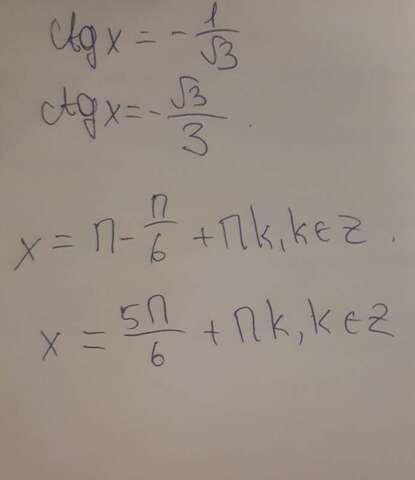 ctg x = - 1/√3
ctg x = - √3/3 .
x = π - π/6 + πk, k ∈ z .
x = 5π/6 + πk, k ∈ z